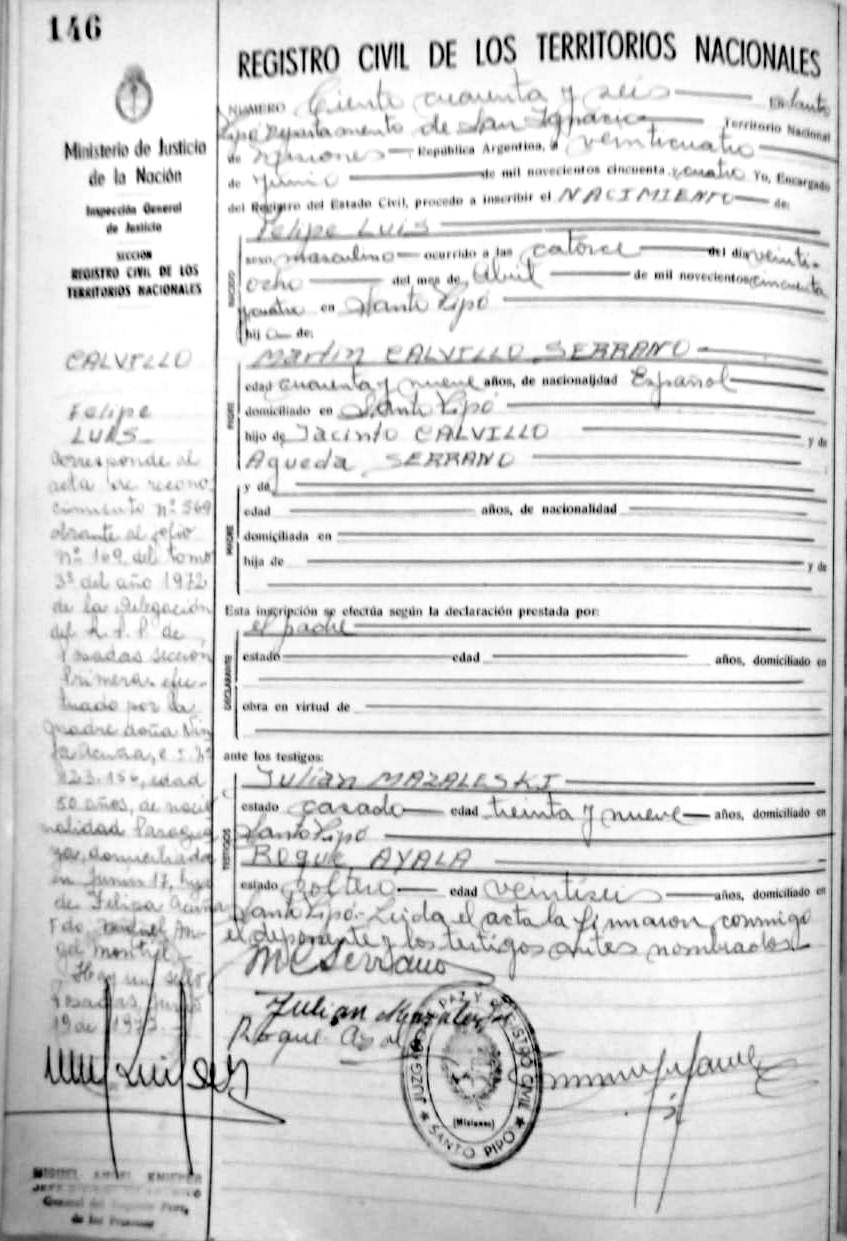 146
REGISTRO CIVIL DE LOS TERRITORIOS NACIONALES
Ministerio de Justicia
de la Nación
Inspección General
de Justicia
SECCION
REGISTRO CIVIL DE LOS
TERRITORIOS NACIONALES
CALVILLO
Felipe
LUIS
Corresponde al
acta de recono
cimiento nº 569
obrante al folio
nº 169 del tomo
3º del año 1972
de la Delegación
del R. P. P. de
Posadas sección
Primera efec-
tuado por la
madre doña
Acuña,
123.156, edad
50 años, de nacio
nalidad Paragua
ya, domiciliada
en Junin 17, hija
de Felipa Acuña
Fdo. An-
gel
Hay un sello
Posadas, Junio
19 de 1973.
NUMERO Ciento cuarenta y seis En Santo
Pipó Departamento de San Ignacio Territorio Nacional
de Misiones República Argentina, a veinticuatro
de Junio de mil novecientos cincuenta y cuatro Yo, Encargado
del Registro del Estado Civil, procedo a inscribir el NACIMIENTO de:
Felipe Luis
sexo masculino ocurrido a las catorce del día veinti-
ocho del mes de Abril de mil novecientos cincuenta
y cuatro en Santo Pipó
hij o de:
Martin CALVILLO SERRANO
PADRE
edad cuarenta y nueve años, de nacionalidad Español
domiciliado en Santo Pipó
hijo de Jacinto CALVILLO y de
Agueda SERRANO
y de
MADRE
edad años, de nacionalidad
domiciliada en
hija de y de
Esta inscripción se efectúa según la declaración prestada por:
el padre
DECLARANTE
estado edad años, domiciliado en
obra en virtud de
ante los testigos:
TESTIGOS
Julian MAZALESKI
estado casado edad treinta y nueve años, domiciliado en
Santo Pipó
Roque AYALA
estado soltero edad veintiseis años, domiciliado en
Santo Pipó. Leida el acta la firmaron conmigo
el deponente y los testigos antes nombrados
M C Serrano
Julian Mazaleski
Roque Ayala
JUZGADO DE PAZ Y REGISTRO CIVIL
(Misiones)
SANTO PIPO
MIGUEL ANGEL
General del Registro Prov.
de las Personas